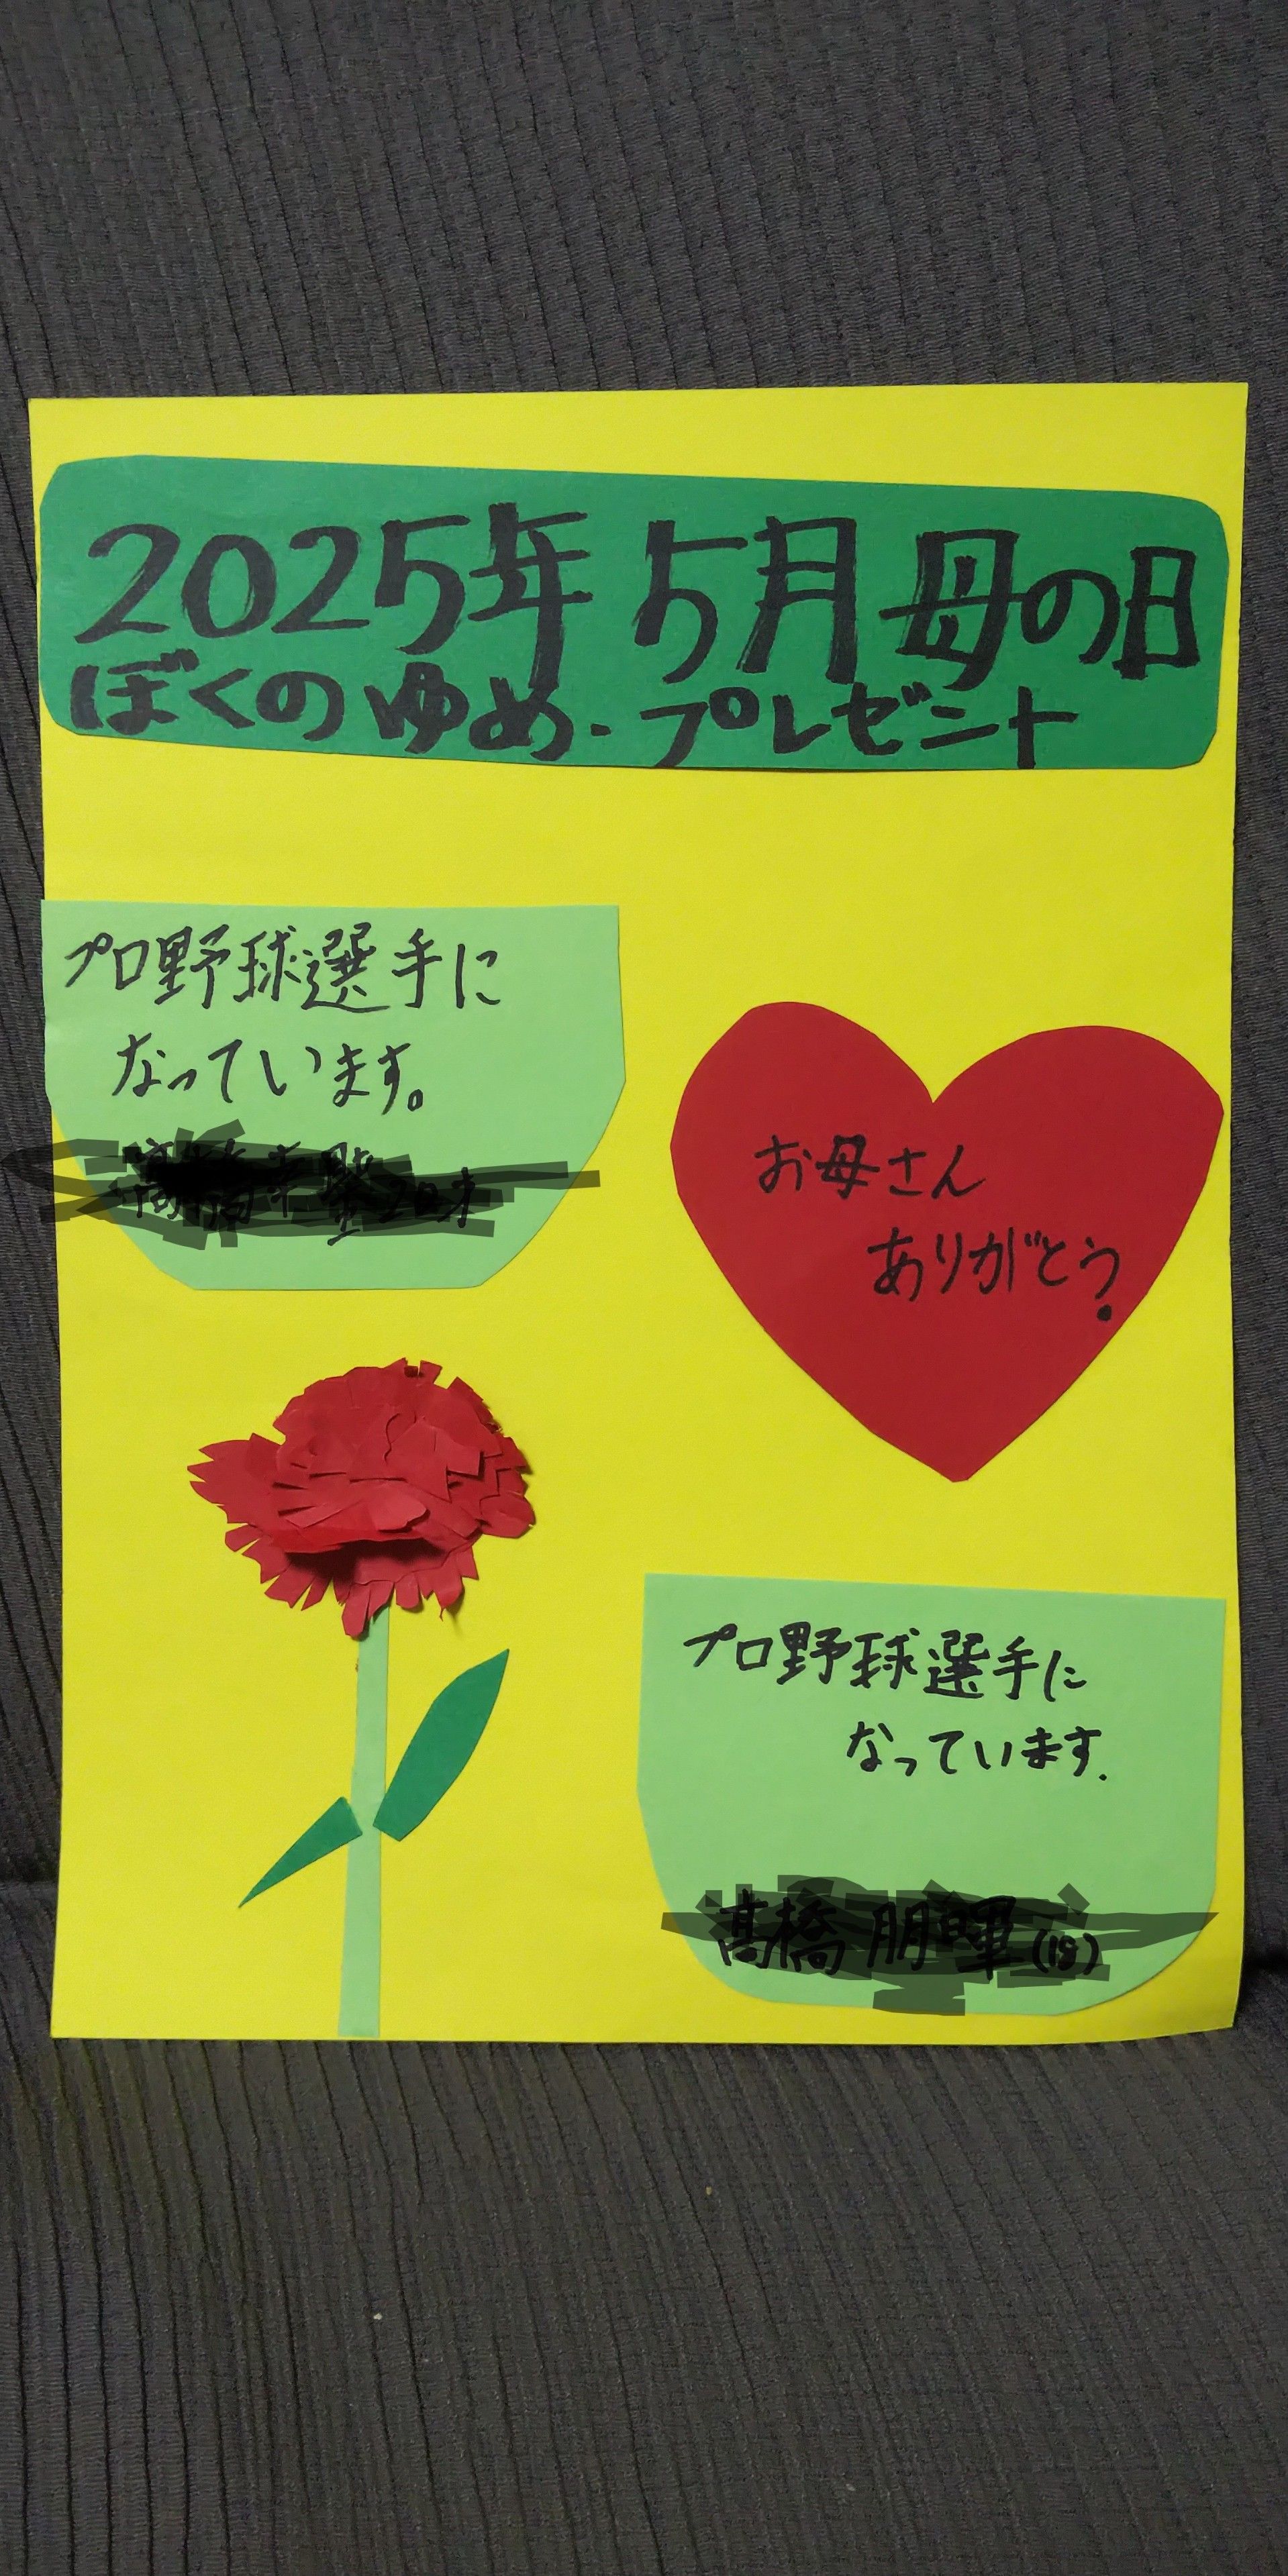 2025年 5月 母の日
ぼくのゆめ.プレゼント
プロ野球選手に
なっています。
お母さん
ありがとう.
プロ野球選手に
なっています.